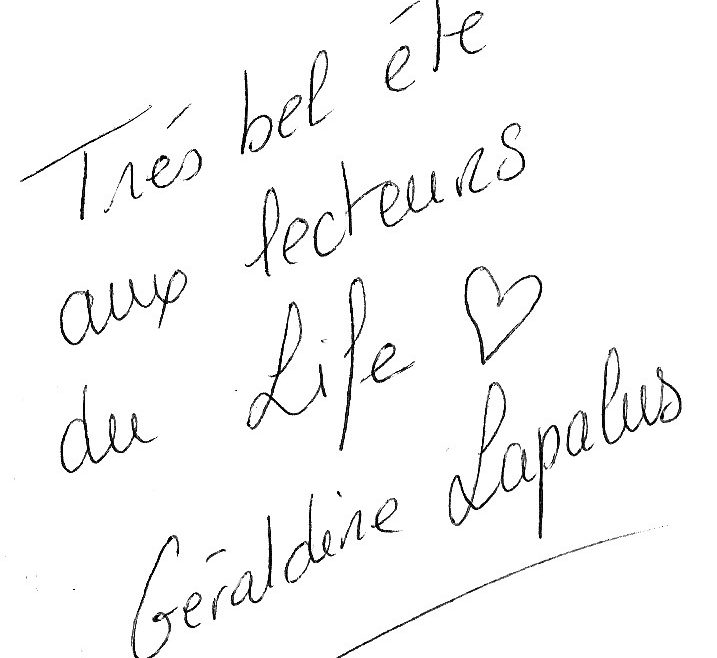 Trés bel été
aux lecteurs
du Life ♡
Géraldine Lapalus